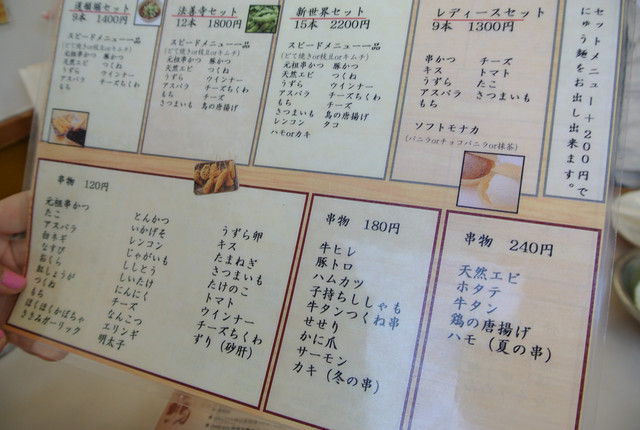 道頓堀セット
9本 1400円
スピードメニュー一品
(どて焼きor枝豆orキムチ)
元祖串かつ 豚かつ
天然エビ つくね
うずら ウインナー
アスパラ チーズちくわ
もち
法善寺セット
12本 1800円
スピードメニュー一品
(どて焼きor枝豆orキムチ)
元祖串かつ 豚かつ
天然エビ つくね
うずら ウインナー
アスパラ チーズちくわ
もち チーズ
さつまいも 鳥の唐揚げ
新世界セット
15本 2200円
スピードメニュー一品
(どて焼きor枝豆orキムチ)
元祖串かつ 豚かつ
天然エビ つくね
うずら ウインナー
アスパラ チーズちくわ
もち チーズ
さつまいも 鳥の唐揚げ
レンコン タコ
ハモorカキ
レディースセット
9本 1300円
串かつ チーズ
キス トマト
うずら たこ
アスパラ さつまいも
もち
ソフトモナカ
(バニラorチョコバニラor抹茶)
セットメニュー+200円で
にゅう麺をお出し出来ます。
串物 120円
元祖串かつ
たこ
アスパラ
白ネギ
なすび
おくら
紅しょうが
つくね
もち
ほくほくかぼちゃ
ささみガーリック
とんかつ
いかげそ
レンコン
じゃがいも
ししとう
しいたけ
にんにく
チーズ
なんこつ
エリンギ
明太子
うずら卵
キス
たまねぎ
さつまいも
たけのこ
トマト
ウインナー
チーズちくわ
ずり(砂肝)
串物 180円
牛ヒレ
豚トロ
ハムカツ
子持ちししゃも
牛タンつくね串
せせり
かに爪
サーモン
カキ(冬の串)
串物 240円
天然エビ
ホタテ
牛タン
鶏の唐揚げ
ハモ(夏の串)